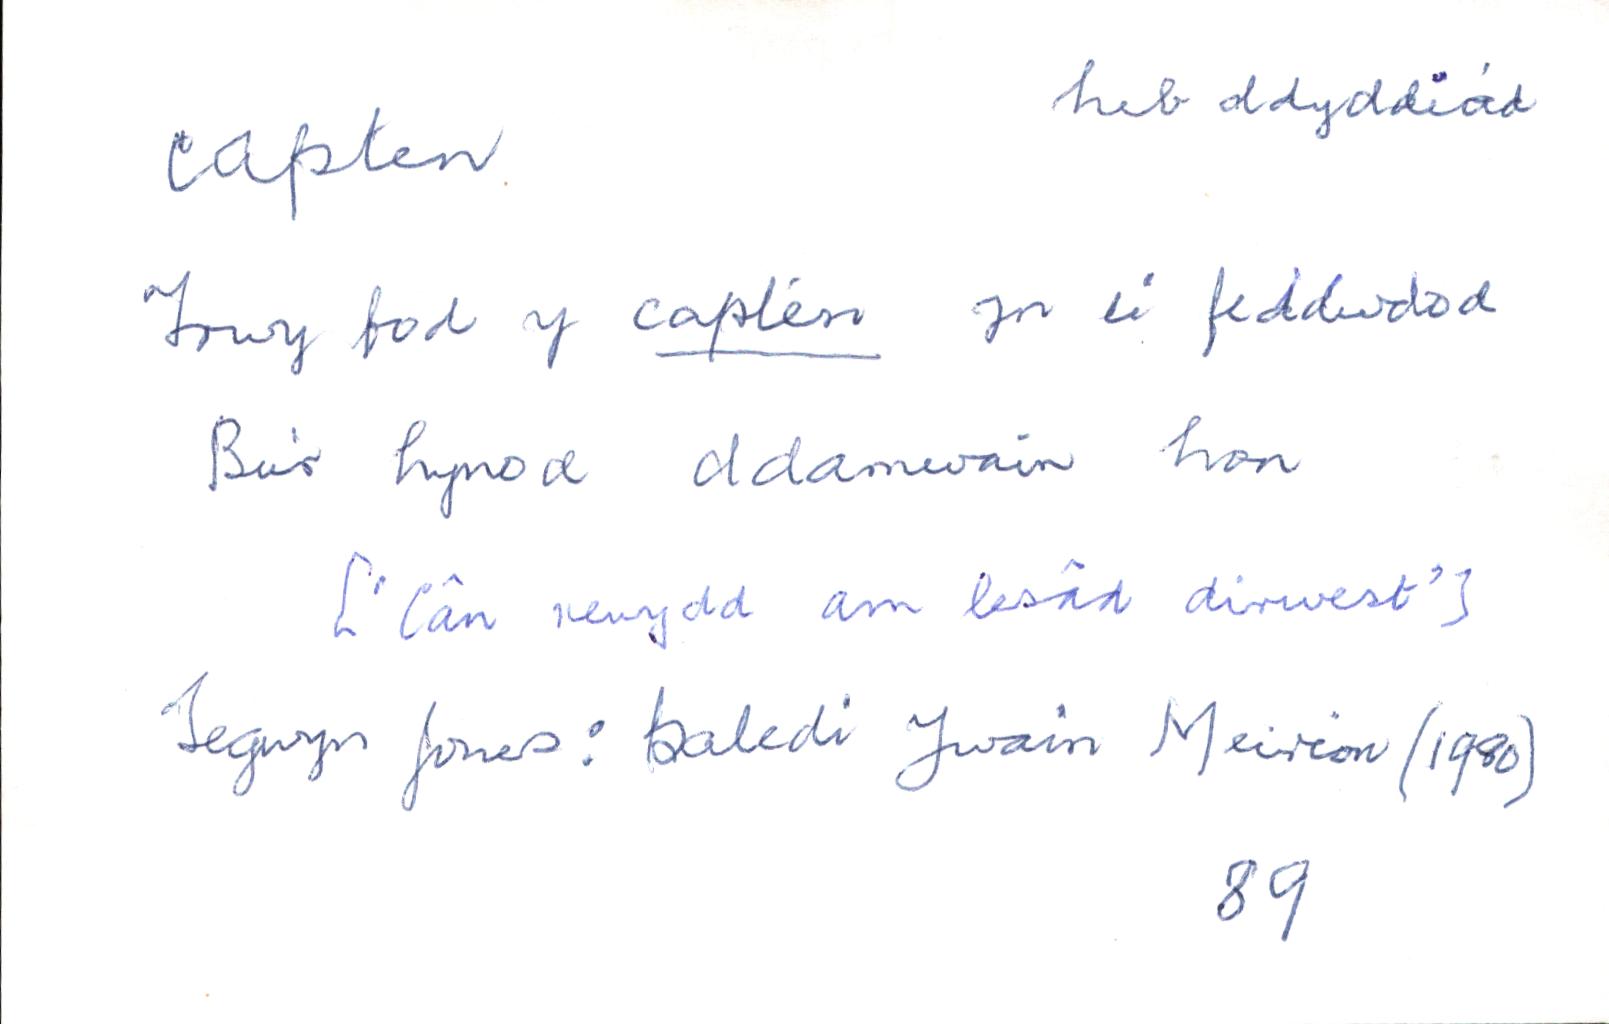 heb ddyddiad
capten
Trwy fod y capten yn ei feddwdod
Bu'r hynod ddamwain hon
['Cân newydd am lesâd dirwest']
Tegwyn Jones: Baledi Ywain Meirion (1980)
89